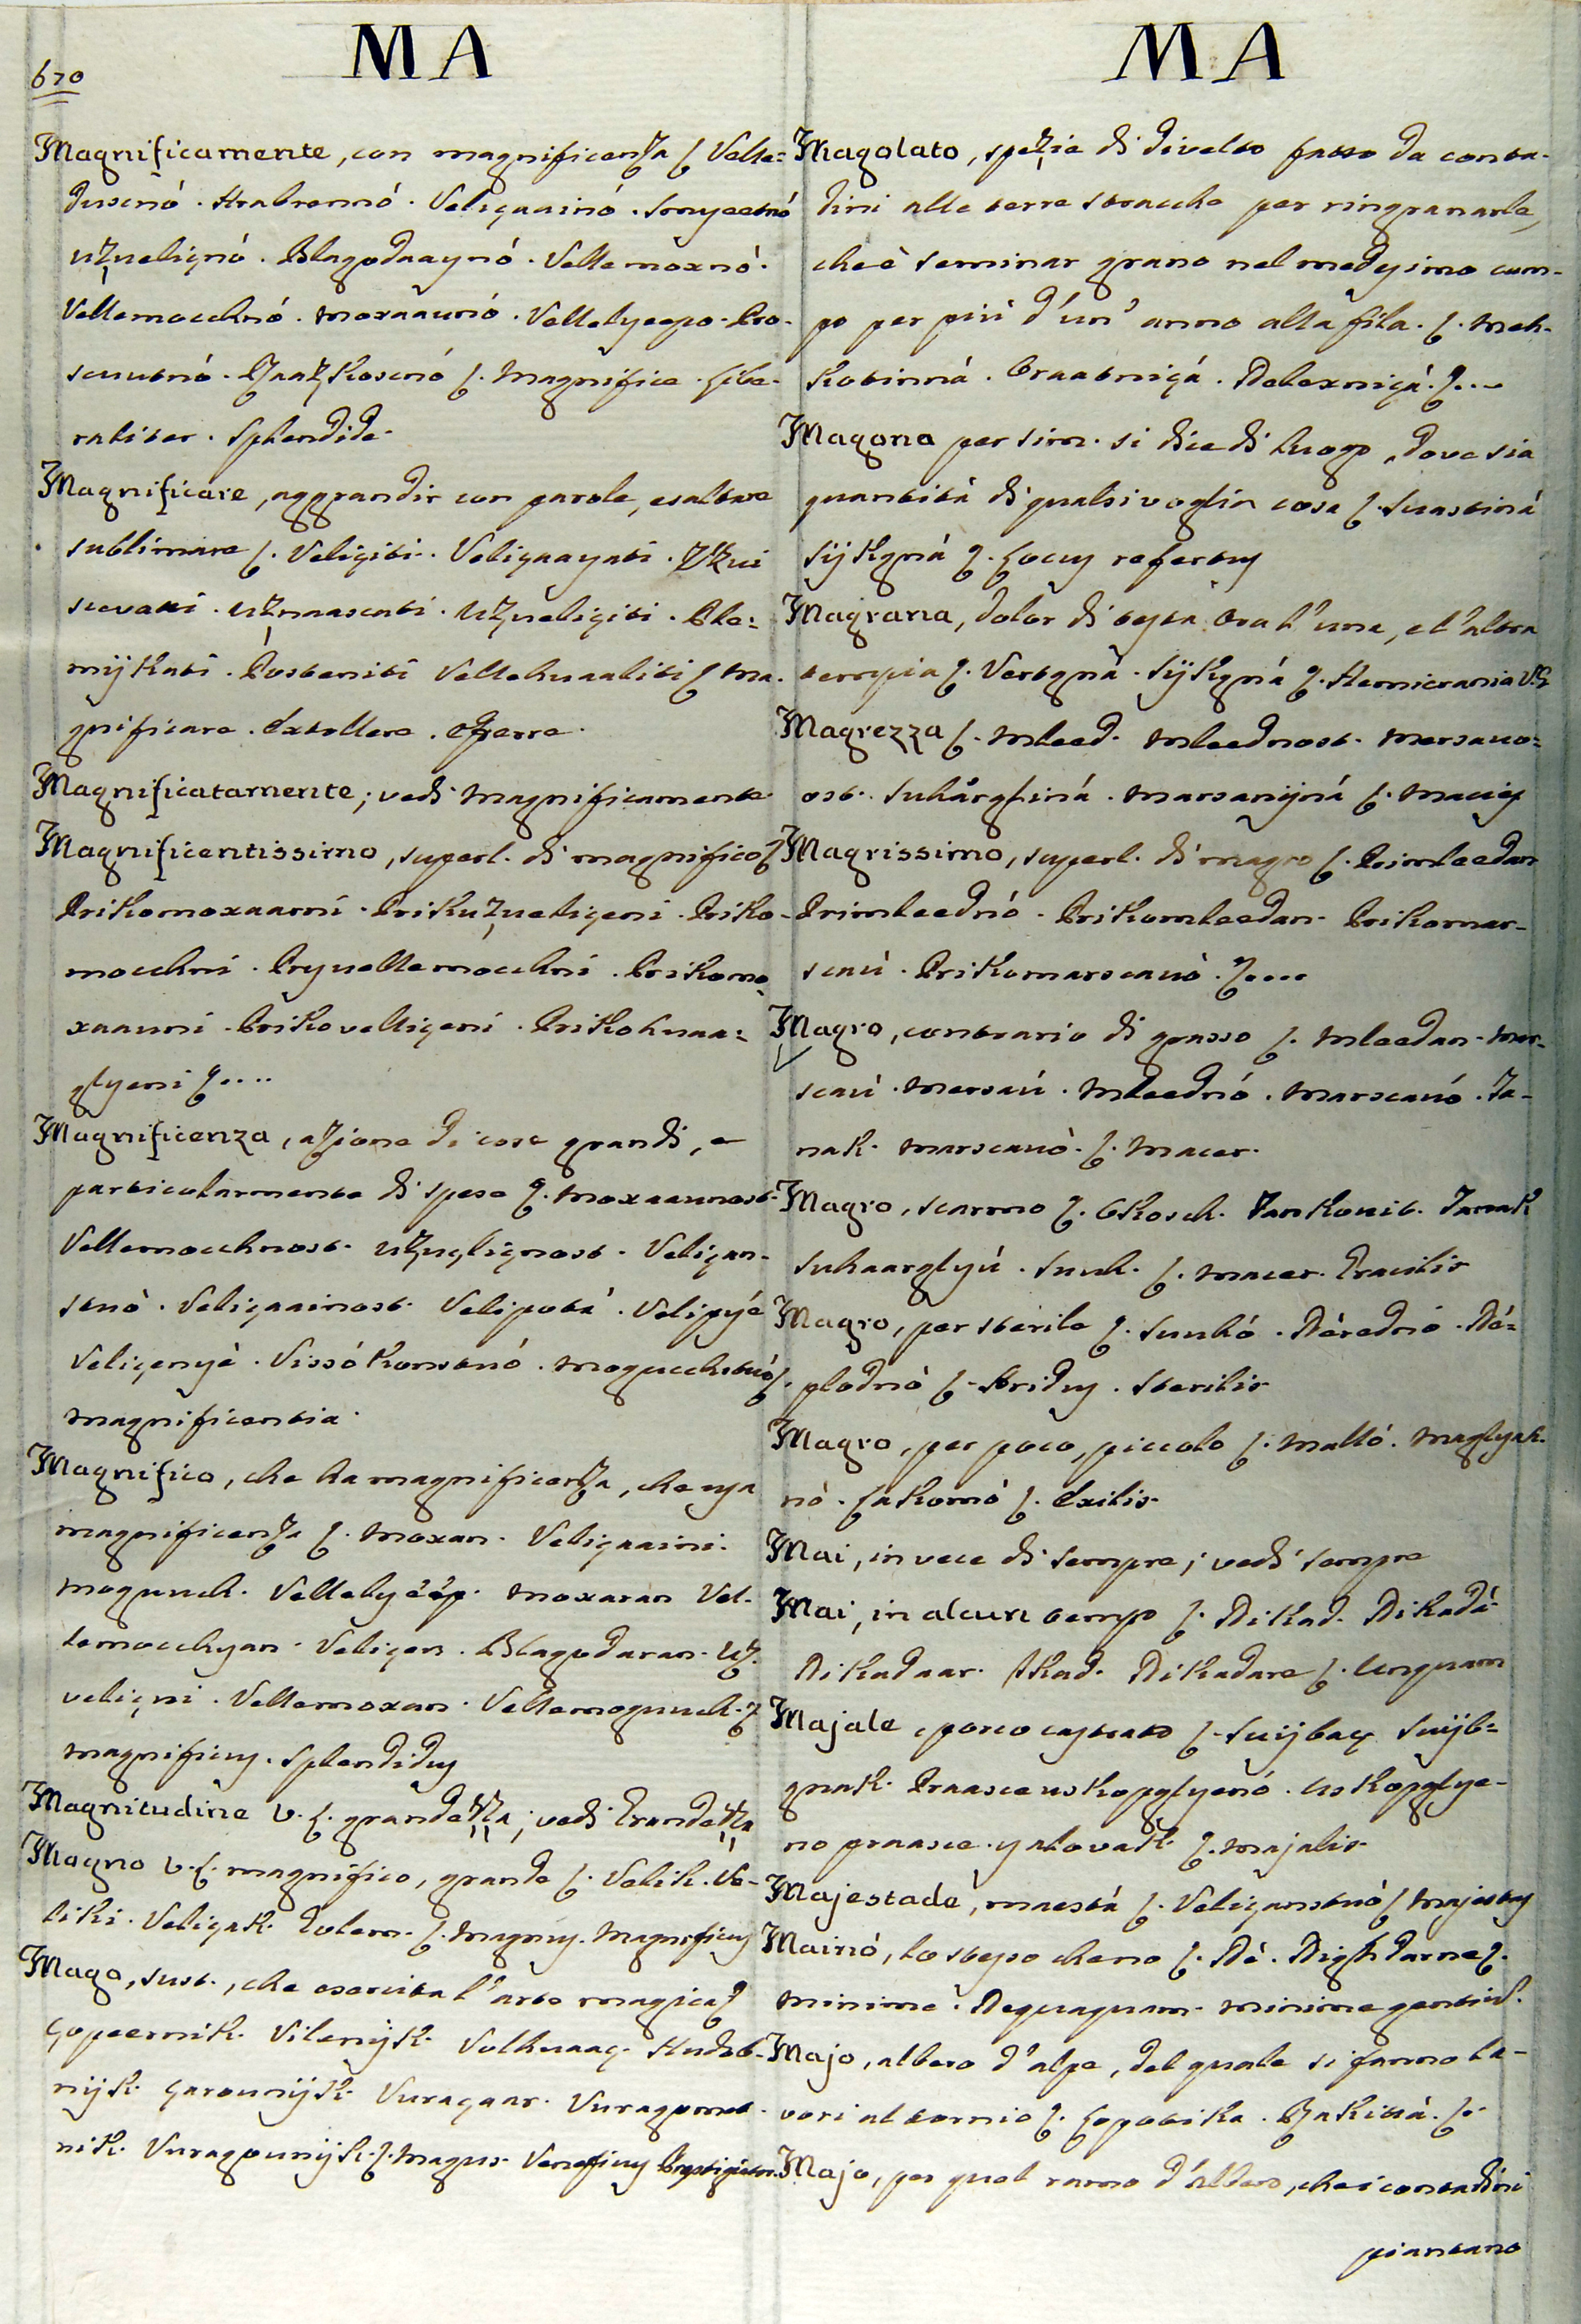 670
MA
Magnificamente, con magnificenza ſ. Velle=
duscnó. Hrabrennó. Veliçaainó.
uzueliçnó. Blagodaaynó. Vellemoxnó.
Vellemocchnó. moxaaunó. Vellelyeepo. Pro-
ſ. Magnifice. Libe-
raliter. Splendide.
Magnificare, aggrandir con parole, esaltare
sublimare ſ. Veliçiti. Veliçaayati. Uzui
scevati. uzmaascati. uzueliçiti. Ple=
mijkati. Posteniti Vellehuaaliti ſ. Ma-
gnificare. Extollere. efferre.
Magnificatamente; vedi Magnificamente
Magnificentissimo, superl. di magnifico ſ.
Prikomoxaarni. Prikuzueliçeni. Priko-
mocchni. Pryvellemocchni. Prikomo-
xaauni. Prikovelliçeni. Prikohuaa=
glyeni ſ....
Magnificenza, azione di cose grandi, e
particolarmente di spese ſ. Moxaaunost.
Vellemocchnost. uzueliçnost. Veliçan-
stuò. Veliçaainost. Velipotá. Velipyé
Veliçenyè. Vissókonstuó. Mogucchstuó ſ.
magnificentia.
Magnifico, che ha magnificenza, che usa
magnificenza ſ. Moxan. Veliçaaini.
moguuch. Vellelyéép. Moxaran Vel-
lemocchyan. Veliçen. Blagodaran. Uz-
veliçni. Vellemoxan. Vellemoguuch. ſ.
magnificus. Splendidus
Magnitudine V. L. grandezza; vedi Grandezza
Magno V. L. magnifico, grande ſ. Velik. Ve-
liki. Veliçak. Golem. ſ. Magnus. Magnificus
Mago, sust., che esercita l'arte magica ſ.
Çopeernik. Vilenijk. Vulhuaaç. Hudob-
nijk. Çarounijk. Vuraçaar. Vuragomet-
nik. Vuragounijk. ſ. Magus. Veneficus
MA
Magolato, spezie di divelto fatto da conta-
dini alle terre stracche per ringranarle,
che è seminar grano nel medesimo cam-
po per più d'un'anno alla fila. ſ. Mek-
kotinná. Oraatniçá. Nelexniçá. ſ...
Magona per sim. si dice di luogo, dove sia
quantità di qualsivoglia cosa ſ. Suastiná
Sijkgná ſ. Locus refertus
Magrana, dolor di testa tra l'una, e l'altra
tempia ſ. Vertgná. Sijkgná ſ. Hemicrania
Magrezza ſ. Mleed. Mleednost. Mersauo=
ost. Suhårghiná. Marsanijná ſ. Macies
Magrissimo, superl. di magro ſ. Primleedan
Primleednó. Prikomleedan. Prikomar-
scaú. Prikomarscauò. ſ....
Magro, contrario di grasso ſ. Mleedan. Mar-
scaú. Mersaú. Mleednó. Marscauó. Ta-
nak. Marscauò. ſ. Macer.
Magro, scarmo ſ. Okosch. Tankouit. Tanak
Suhaarglyú. Suuh. ſ. Macer. Gracilis
Magro, per sterile ſ. Suuhó. Nèrednó. Né=
plodnò ſ. Aridus. Sterilis
Magro, per poco, piccolo ſ. Malló. Maglyah-
nò. Lakomò ſ. Exilis.
Mai, in vece di sempre; vedi sempre
Mai, in alcun tempo ſ. Nikad. Nikadá
Nikadaar. Ikad. Nikadare ſ. Unquam
Majale, porco castrato ſ. Suijbaç Suijb=
gnak. Praasce uskopglyenó. Uskopglye-
no praasce. yalovak ſ. Majalis.
Majestade, maestá ſ. Veliçanstuó ſ. Majestas
Mainò, lo stesso che no ſ. Né. Nighdarne ſ.
minime. Nequaquam. minime gentium.
Majo, albero d'alpe, del quale si fanno la-
vori al tornio ſ. Lopotika. Rakittá. ſ.
Majo, per quel ramo d'albero, che i contadini
piantano